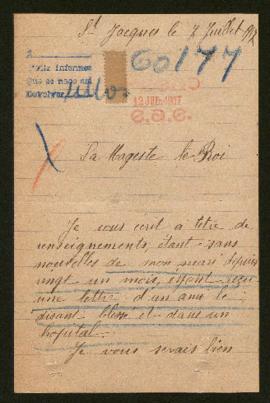 St Jacques le 7 Juillet
A
Pide informes
que se pace un
Devolver
60177
12 JUL. 1917
Sa Majeste le Roi
Je vous ecrit a titre de
renseignements, étant sans
nouvelles de mon mari depuis
vingt un mois, ésant reçu
une lettre d'un ami le
disant blessé et dans un
hopital.
Je vous serais bien